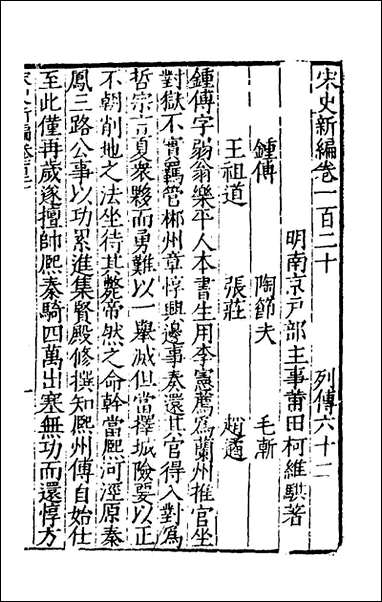 宋史新編卷一百二十 列傳六十二
明南京戸部主事莆田柯維騏著
鍾傅 陶節夫 毛漸
王祖道 張莊 趙遹
鍾傅字弱翁樂平人本書生用李憲薦爲蘭州推官坐
對獄不實羈管郴州章惇興邊事奏還其官得入對爲
哲宗言夏衆夥而勇難以一舉滅但當擇城險要以正
不朝削地之法坐待其斃帝然之命幹當熙河涇原秦
鳳三路公事以功累進集賢殿修撰知熙州傅自始仕
至此僅再歲遂擅帥熙秦騎四萬出塞無功而還惇方